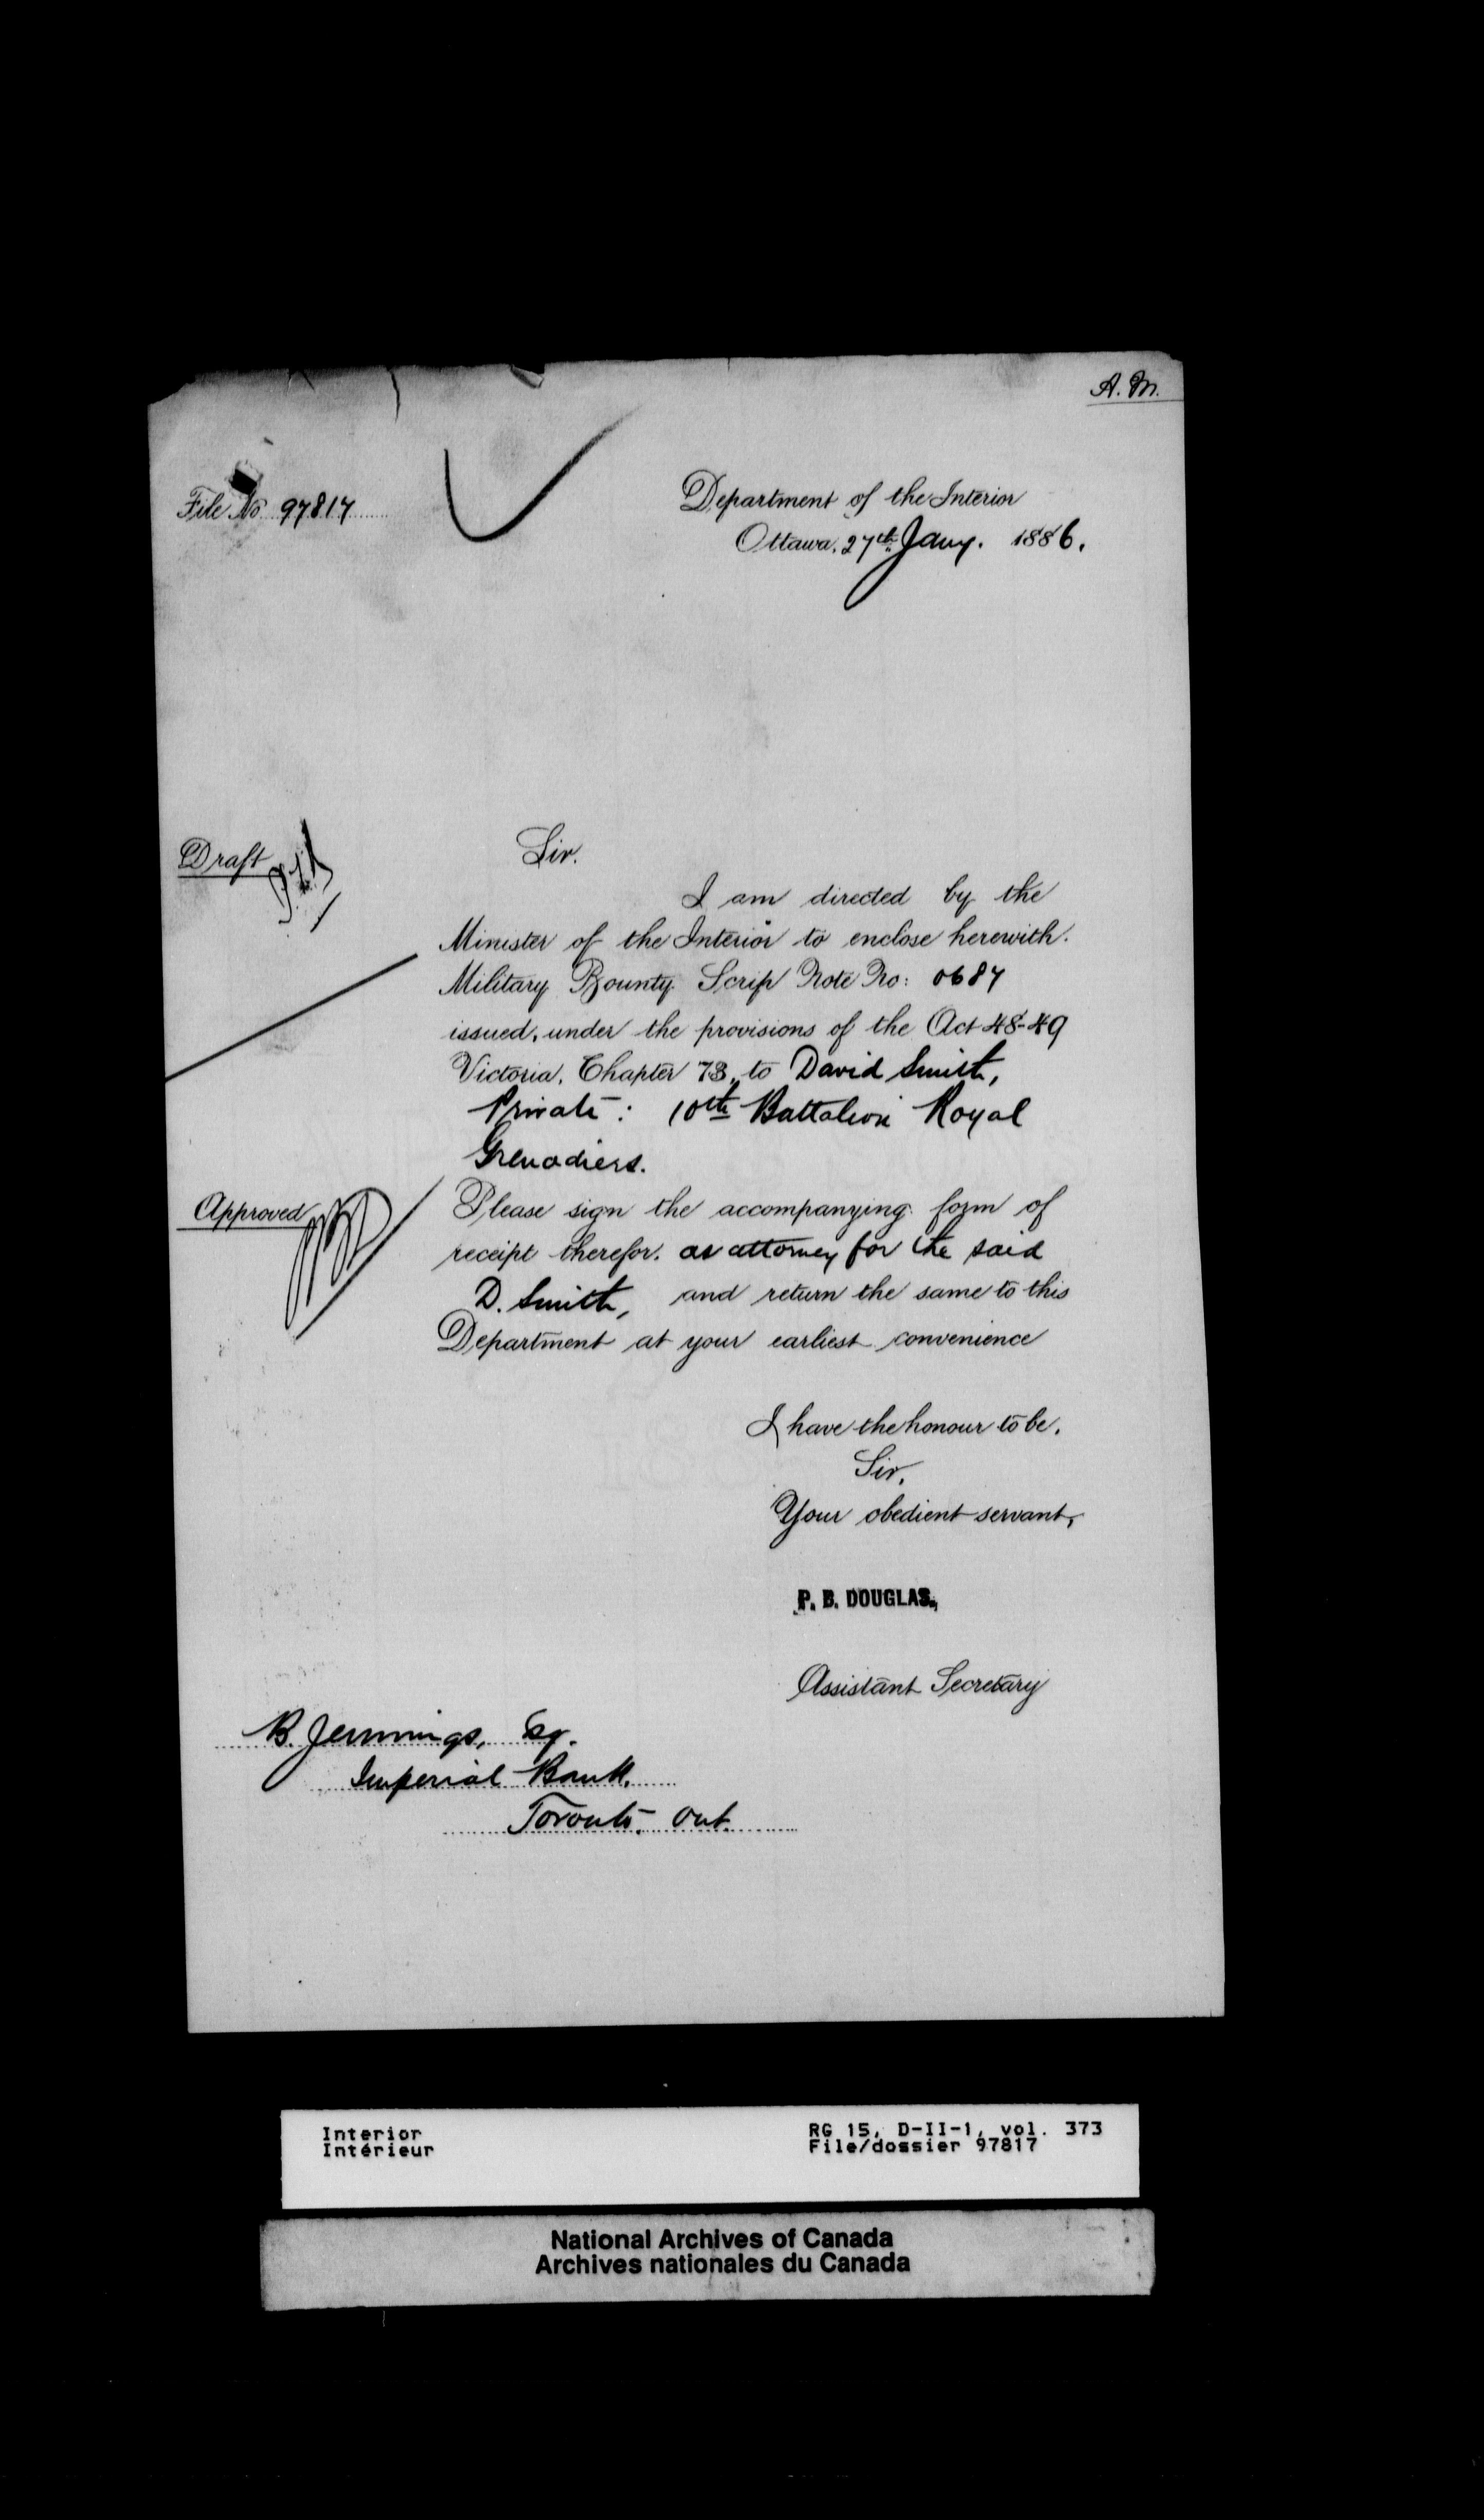 A. M.
File No. 97817
Department of the Interior
Ottawa, 27th Jany. 1886.
Draft
Sir.
I am directed by the
Minister of the Interior to enclose herewith.
Military Bounty Scrip Note No: 0687
issued, under the provisions of the Act 48-49
Victoria, Chapter 73, to David Smith,
Private: 10th Battalion Royal
Grenadiers.
Approved
Please sign the accompanying form of
receipt therefor. as attorney for the said
D. Smith, and return the same to this
Department at your earliest convenience
I have the honour to be,
Sir,
Your obedient servant,
P. B. DOUGLAS.,
Assistant Secretary
B. Jennings, Esq.
Imperial Bank.
Toronto, Ont.
Interior
Intérieur
RG 15, D-II-1, vol. 373
File/dossier 97817
National Archives of Canada
Archives nationales du Canada